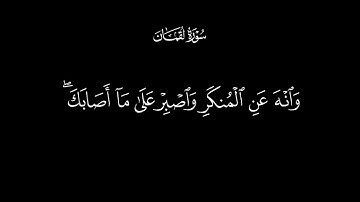 سُورَةُ لُقۡمَانَ
وَٱنۡهَ عَنِ ٱلۡمُنكَرِ وَٱصۡبِرۡ عَلَىٰ مَآ أَصَابَكَۖ